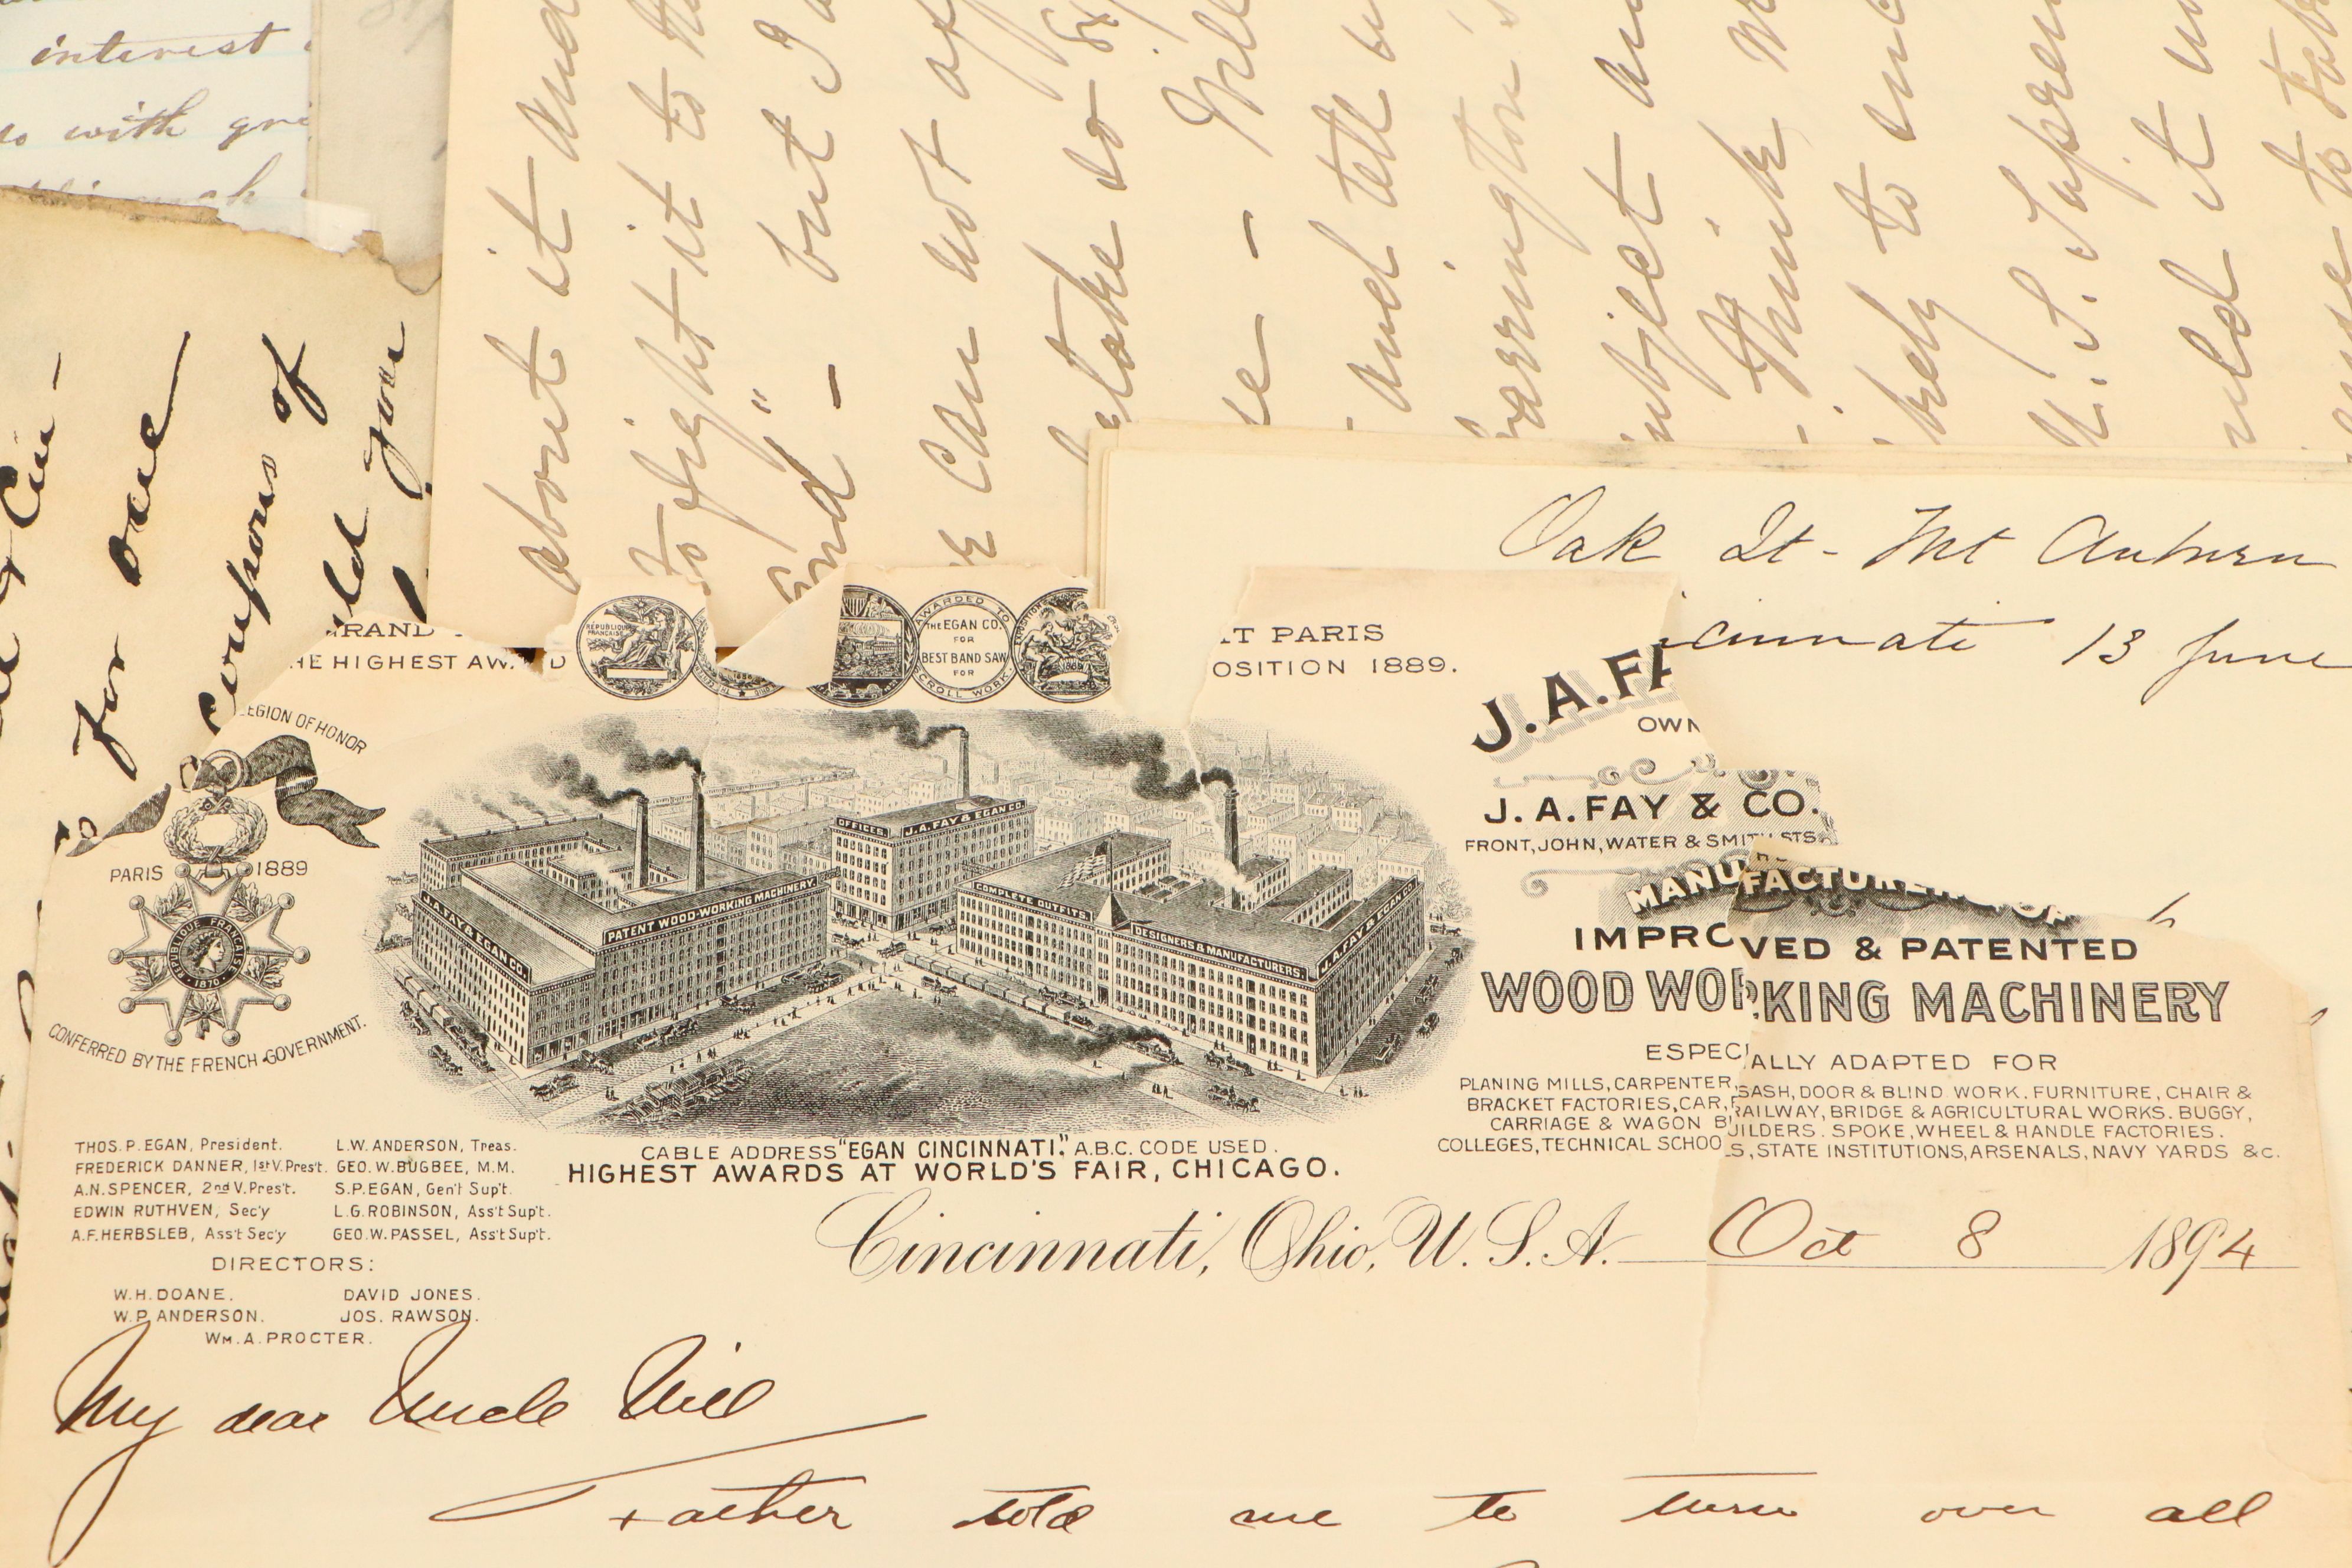 interest
with
about it and
to fight it to the
" but I
End -
can not
take so
and tell
Farrington's
subject
think
to
U. S. Supreme
it
to take
for one
coupons of
you
Oak St - Mt Auburn
cinnati 13 June
RAND
HE HIGHEST AWARD
REPUBLIQUE FRANCAISE
AWARDED TO
THE EGAN CO.
FOR
BEST BAND SAW
FOR
SCROLL WORK.
AT PARIS
OSITION 1889.
LEGION OF HONOR
PARIS 1889
REPUBLIQUE FRANCAISE
1870
CONFERRED BY THE FRENCH GOVERNMENT.
J.A. FAY & EGAN CO.
PATENT WOOD-WORKING MACHINERY
OFFICES
J.A. FAY & EGAN CO.
COMPLETE OUTFITS.
DESIGNERS & MANUFACTURERS.
J.A. FAY & EGAN CO.
J.A.FA
OWN
J. A. FAY & CO.
FRONT, JOHN, WATER & SMITH STS
MANUFACTURERS OF
IMPROVED & PATENTED
WOOD WORKING MACHINERY
ESPECIALLY ADAPTED FOR
PLANING MILLS, CARPENTER, SASH, DOOR & BLIND WORK. FURNITURE, CHAIR &
BRACKET FACTORIES, CAR, RAILWAY, BRIDGE & AGRICULTURAL WORKS. BUGGY,
CARRIAGE & WAGON BUILDERS. SPOKE, WHEEL & HANDLE FACTORIES.
COLLEGES, TECHNICAL SCHOOLS, STATE INSTITUTIONS, ARSENALS, NAVY YARDS &c.
THOS. P. EGAN, President. L.W. ANDERSON, Treas.
FREDERICK DANNER, 1st V. Pres't. GEO. W. BUGBEE, M.M.
A.N. SPENCER, 2nd V. Pres't. S.P. EGAN, Gen'l Sup't.
EDWIN RUTHVEN, Sec'y L.G. ROBINSON, Ass't Sup't.
A.F. HERBSLEB, Ass't Sec'y GEO. W. PASSEL, Ass't Sup't.
DIRECTORS:
W.H. DOANE. DAVID JONES.
W.P. ANDERSON. JOS. RAWSON.
WM. A. PROCTER.
CABLE ADDRESS "EGAN CINCINNATI." A.B.C. CODE USED.
HIGHEST AWARDS AT WORLD'S FAIR, CHICAGO.
Cincinnati, Ohio, U.S.A. Oct 8 1894
My dear Uncle Will
Father told me to turn over all